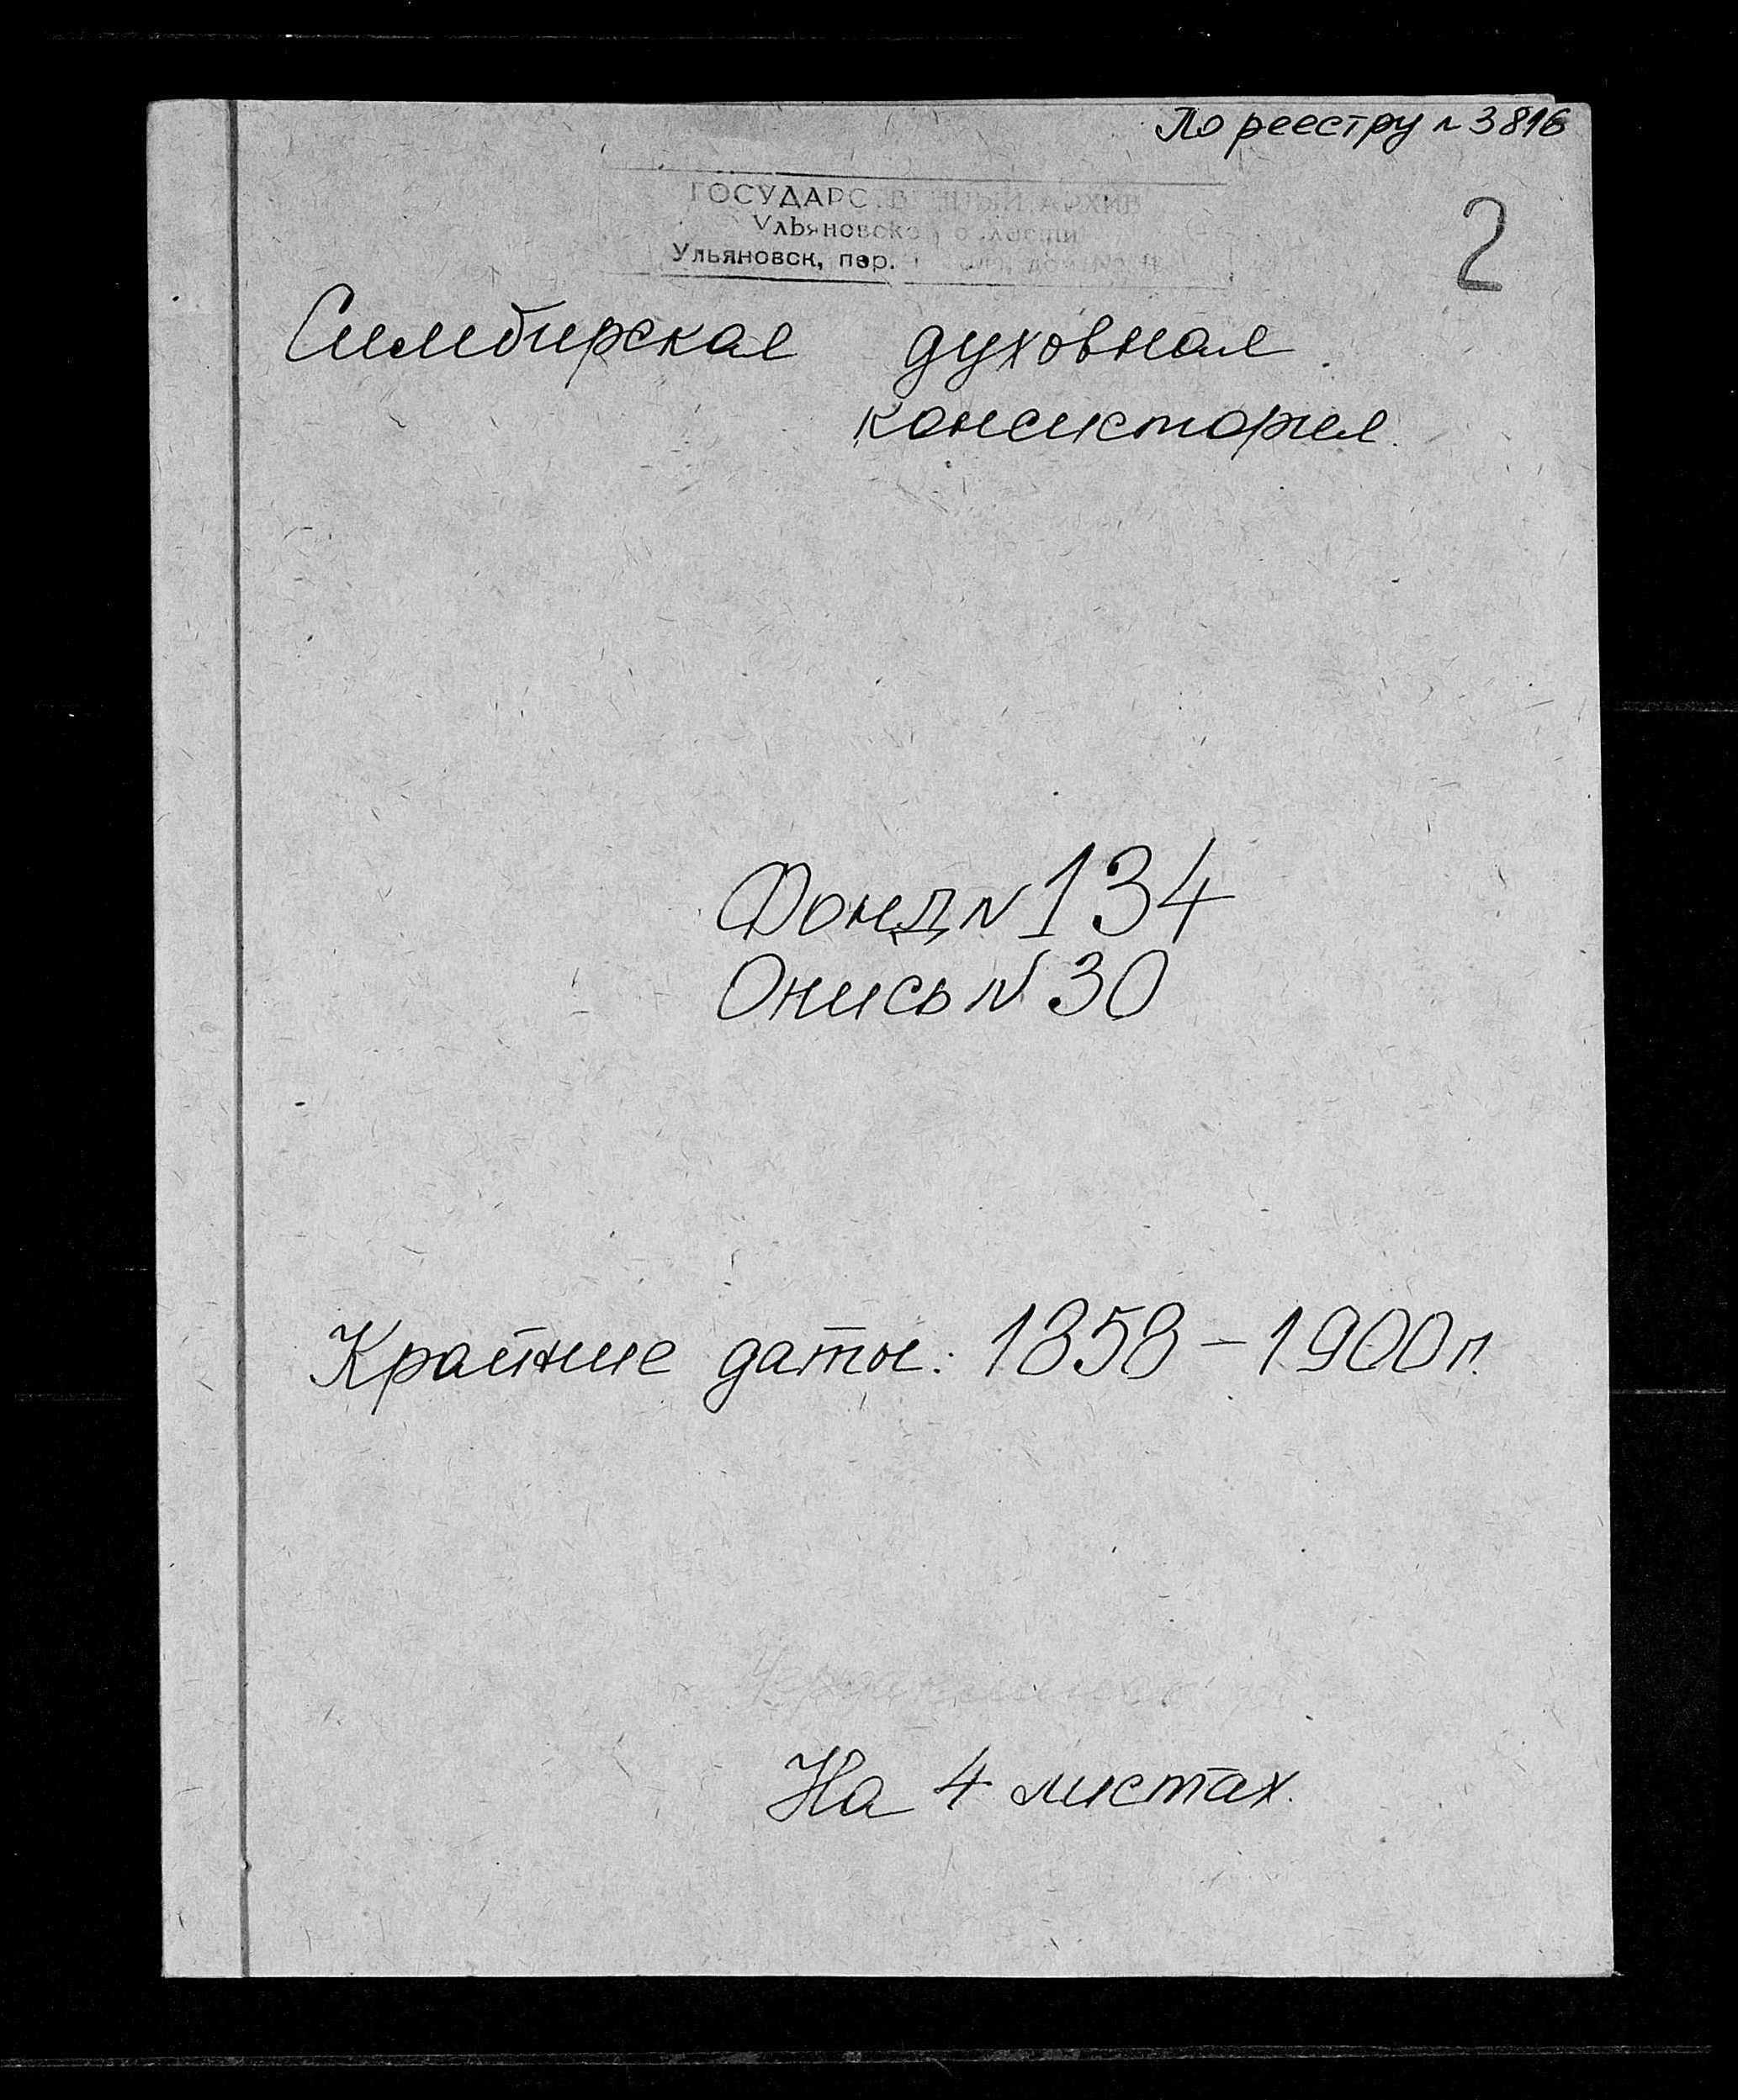 По реестру № 3816
ГОСУДАРСТВЕННЫЙ АРХИВ
Ульяновской области
Ульяновск, пер.
2
Симбирская духовная
консистория.
Фонд № 134
Опись № 30
Крайние даты: 1858 – 1900 г.
На 4 листах.